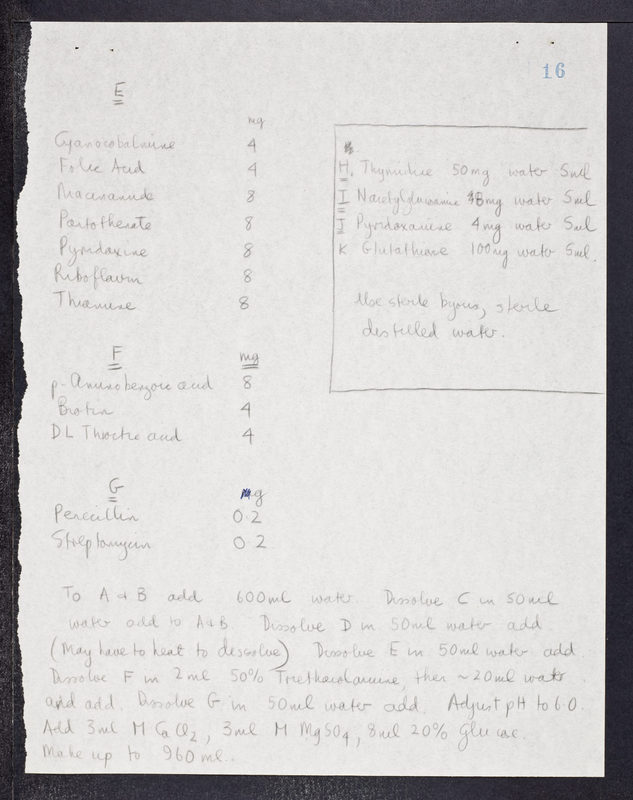 16
E
mg
Cyanocobalmine 4
Folic Acid 4
Niacinamide 8
Pantothenate 8
Pyridoxine 8
Riboflavin 8
Thiamine 8
F mg
p-Aminobenzoic acid 8
Biotin 4
DL Thioctic acid 4
G g
Penicillin 0.2
Streptomycin 0.2
H. Thymidine 50mg water 5ml
I Nacetylglucosamine mg water 5ml
J Pyridoxamine 4mg water 5ml
K Glutathione 100mg water 5ml.
Use sterile byous, sterile
distilled water.
To A & B add 600ml water. Dissolve C in 50ml
water add to A&B. Dissolve D in 50ml water add
(May have to heat to dissolve) Dissolve E in 50ml water add.
Dissolve F in 2ml 50% Triethanolamine, then ~20ml water
and add. Dissolve G in 50ml water add. Adjust pH to 6.0.
Add 3ml M CaCl2, 3ml M MgSO4, 8ml 20% glucose.
Make up to 960 ml..